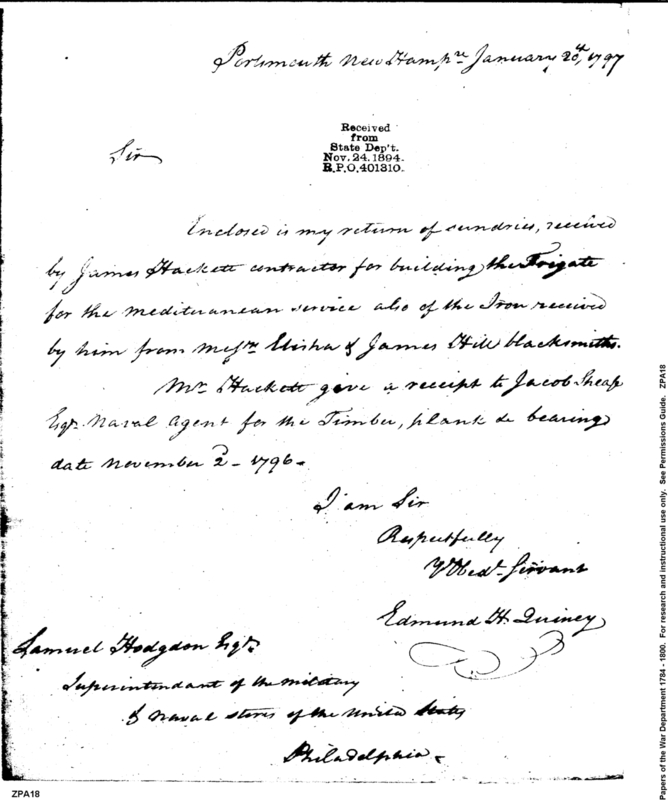 Portsmouth New Hampre January 20th, 1797
Received
from
State Dep't.
Nov. 24. 1894.
R.P.O. 401310.
Sir
Enclosed is my return of sundries, received
by James Hackett contractor for building the Frigate
for the mediteranean service also of the Iron received
by him from Messrs Elisha & James Hill blacksmiths.
Mr Hackett gave a receipt to Jacob Sheafe
Esqr Naval Agent for the Timber, plank &c bearing
date November 2d - 1796 -
I am Sir
Respectfully
Yr Obedt Servant
Edmund H. Quincy
Samuel Hodgdon Esqr
Superintendant of the military
& Naval stores of the United States
Philadelphia
ZPA18
Papers of the War Department 1784 - 1800. For research and instructional use only. See Permissions Guide. ZPA18